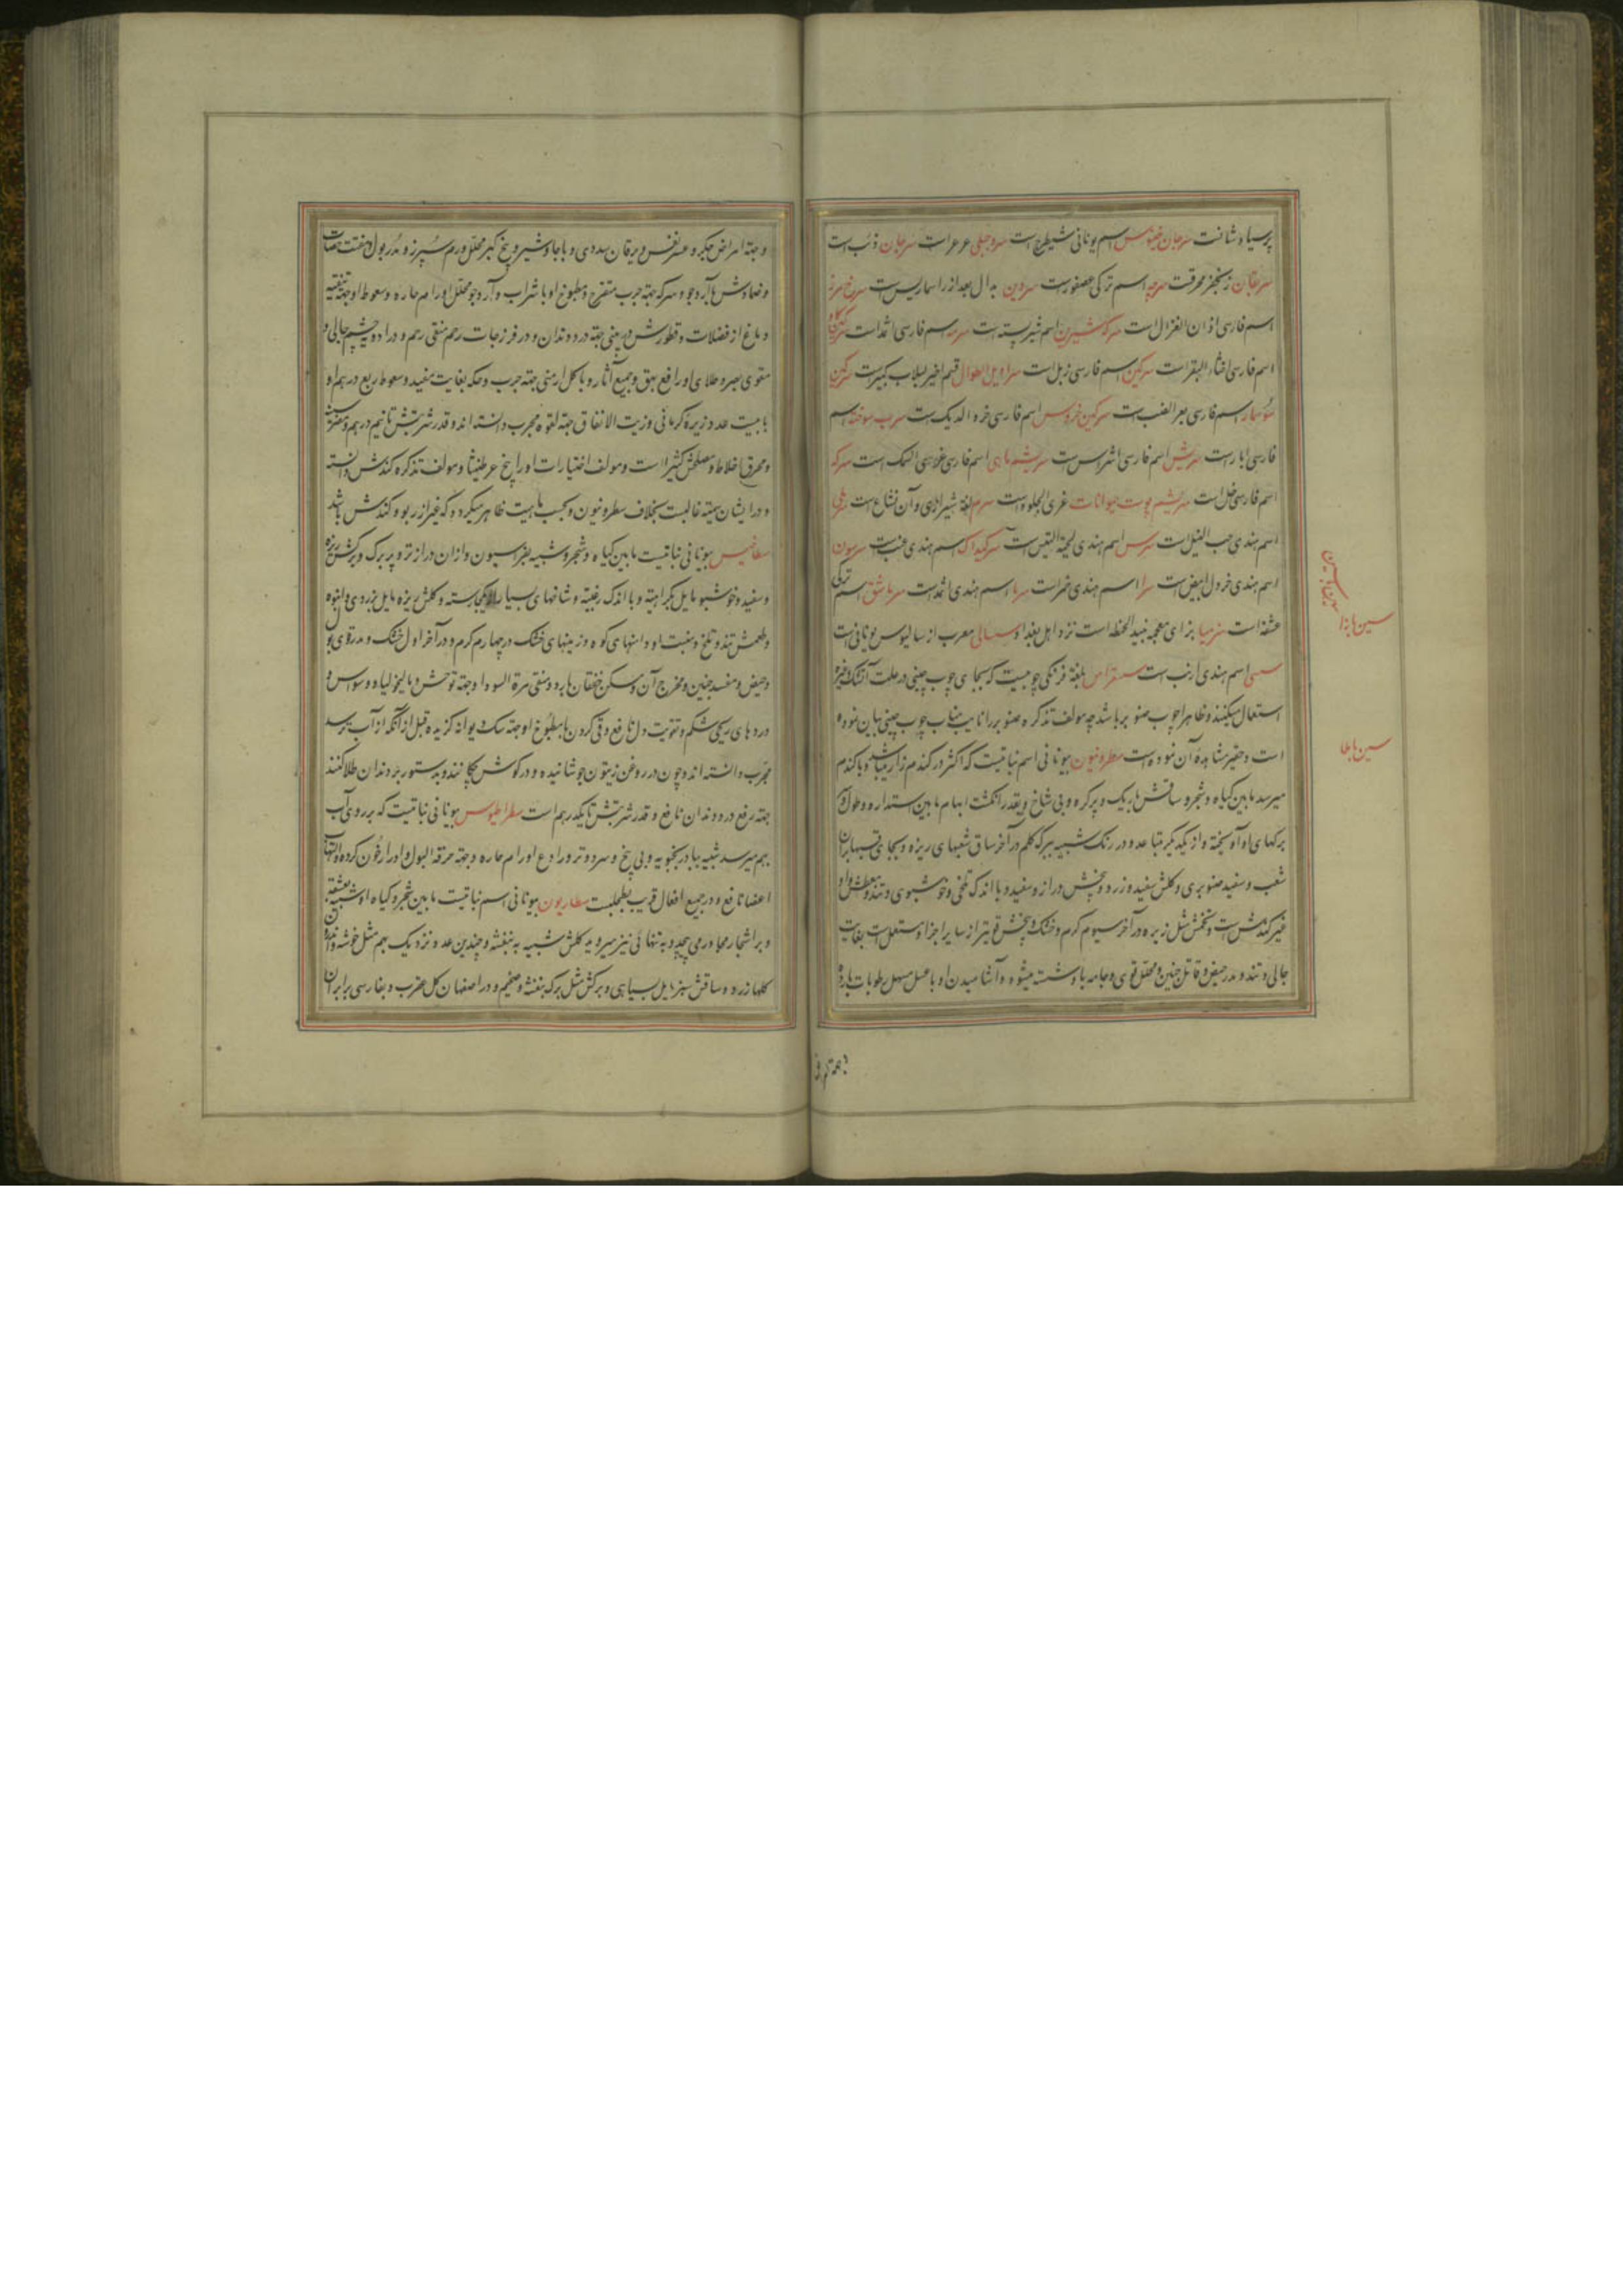 پرسیاوشانت سرجان اسم یونانی شیطرج است سرو جبلی عرعر است سرجان ذئب است
سرنقان زنجفر محرقت اسم ترکی عصفورست بدال بعد از را اسارسیست
اسم فارسی اذان الغزال است اسم شیر پسته است سرمه اسم فارسی اثمد است
اسم فارسی اخثاء البقر است سرکین اسم فارسی زبل است سراویل الطوال قسم اخیر لبلاب کبیر است سرکین
سوسمار اسم فارسی بعر الضب است سرکین خروس اسم فارسی خرء الدیک است سرب سوخته اسم
فارسی ابار است سریش اسم فارسی اشراس است سریشم ماهی اسم فارسی غری السمک است سرکه
اسم فارسی خل است سریشم پوست حیوانات غری الجلود است سرم لغة شیرازی و آن
اسم هندی حب النیل است سرس اسم هندی لحیة التیس است اسم هندی عنب است سرسون
اسم هندی خردل ابیض است سرا اسم هندی خمر است سرما اسم هندی اثمد است سرماشق اسم ترکی
عشقه است بزای معجمه نبیذ الحنطه است نزد اهل بغداد سسالی معرب از سالیوس یونانی است
سسی اسم هندی ارنب است بلغة فرنکی چوبیست که بجای چوب چینی در علت آتشک و غیره
استعمال میکنند و ظاهرا چوب صنوبر باشد چه مولف تذکره صنوبر را نایب مناب چوب چینی بیان نموده
است و حقیر مشاهدهٔ آن ننموده است سطرونیون یونانی اسم نباتیست که اکثر در کندم زارها و با کندم
میرسد مابین کیاه و شجر و ساقش باریک و پرکره و بی شاخ و بقدر انکشت ابهام مابین استداره و طول و
برکهای او آویخته و از یکدیکر متباعد و در رنک شبیه ببرک کلم در آخر ساق شعبهای ریزه و بجای قبهها بر آن
شعب و سفید صنوبری و کلش سفید و زرد و بیخش دراز و سفید و با اندک تلخی و خوشبوی و تند و معطش و او
غیر کندش است و تخمش مثل زیره در آخر سیوم کرم و خشک و بیخش قویتر از سایر اجزا و مستعملست بغایت
جالی و تند و مدر حیض و قاتل جنین و محلل قوی و جامه با او شسته میشود و آشامیدن او با عسل مسهل رطوبات بارده
سین با زا
سین با طا
و جهة امراض جکر و عسر نفس و یرقان سددی و با جاوشیر و بیخ کبر محلل ورم سپرز و مدر بول و مفتت حصات
و ضمادش با آرد جو و سرکه جهة جرب متقرح و مطبوخ او با شراب و آرد جو محلل اورام حاره و سعوط او جهة تنقیه
دماغ از فضلات و قطورش در بینی جهة درد دندان و در فرزجات رحم منقی رحم و در ادویه چشم جالی و
مقوی بصر و طلای او رافع بهق و جمیع آثار و با کل ارمنی جهة جرب و حکه بغایت مفید و سعوط ربع درهم او
با بیست عدد زیرهٔ کرمانی و زیت الانفاق جهة لقوه مجرب دانسته‌اند و قدر شربتش تا نیم درهم و مضر شش
و محرق اخلاط و مصلحش کثیرا است و مولف اختیارات او را بیخ عرطنیثا و مولف تذکره کندش دانسته
و در ایشان سمیته غالبست بخلاف سطرونیون و بحسب ماهیت ظاهر میکردد که غیر آزربو و کندش باشد
سطاخیس یونانی نباتیست مابین کیاه و شجر و شبیه بفراسیون و از آن درازتر و پر برک و برکش ریزه
و سفید و خوشبو مایل بکراهیة و با اندک زغبیة و شاخهای بسیار از یکجا رسته و کلش ریزه مایل بزردی و انبوه
و طعمش تند و تلخ و منبت او دامنهای کوه و زمینهای خشک در چهارم کرم و در آخر اول خشک و مدر قوی بول
و حیض و مفسد جنین و مخرج آن و مسکن خفقان بارد و منقی مرة السودا و جهة توحش و مالیخولیا و وسواس و
دردهای ریحی شکم و تقویت دل نافع و قی کردن با مطبوخ او جهة سک دیوانه کزیده قبل از آنکه از آب ترسد
مجرب دانسته‌اند و چون در روغن زیتون جوشانیده و در کوش چکانند و بدستور بر دندان طلا کنند
جهة رفع درد دندان نافع و قدر شربتش تا یکدرهم است سطراطیوس یونانی نباتیست که بر روی آب
بهم میرسد شبیه ببادرنجبویه و بی بیخ و سرد و تر و رادع اورام حاره و جهة حرقة البول و ادرار خون کرده و التهاب
اعضا نافع و در جمیع افعال قریب بطحلبست سطاریون یونانی اسم نباتیست مابین شجر و کیاه
و بر اشجار مجاور می‌پیچد و به تنهائی نیز میروید کلش شبیه به بنفشه و چندین عدد نزدیک بهم مثل خوشه
کلها زرد و ساقش سبز مایل بسیاهی و برکش مثل برک بنفشه و ضخیم و در اصفهان کل عقرب و بفارسی برابران